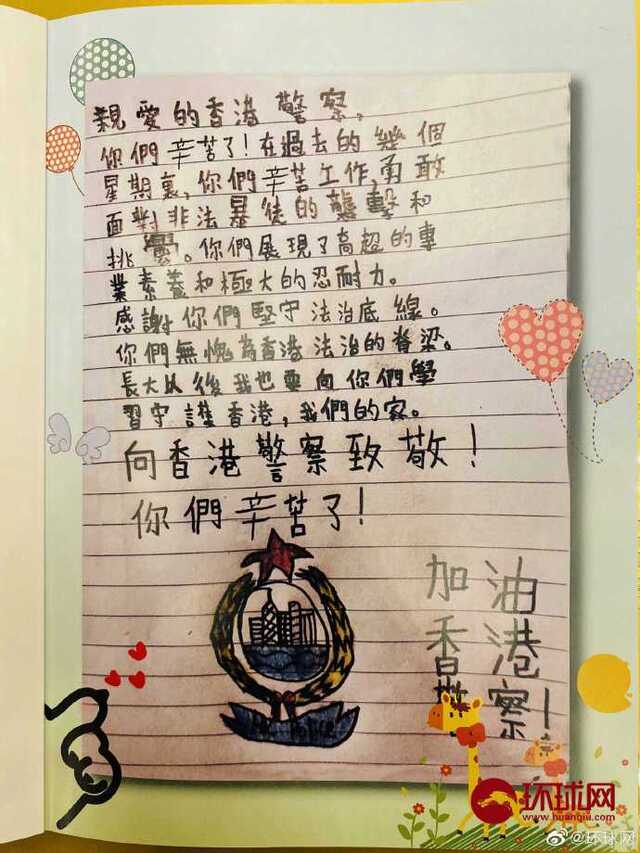 親愛的香港警察,
你們辛苦了!在過去的幾個
星期裏,你們辛苦工作,勇敢
面對非法暴徒的襲擊和
挑釁。你們展現了高超的專
業素養和極大的忍耐力。
感謝你們堅守法治底線。
你們無愧為香港法治的脊梁。
長大以後我也要向你們學
習守護香港,我們的家。
向香港警察致敬!
你們辛苦了!
加油
香港
察!
環球网
www.huanqiu.com
@环球网